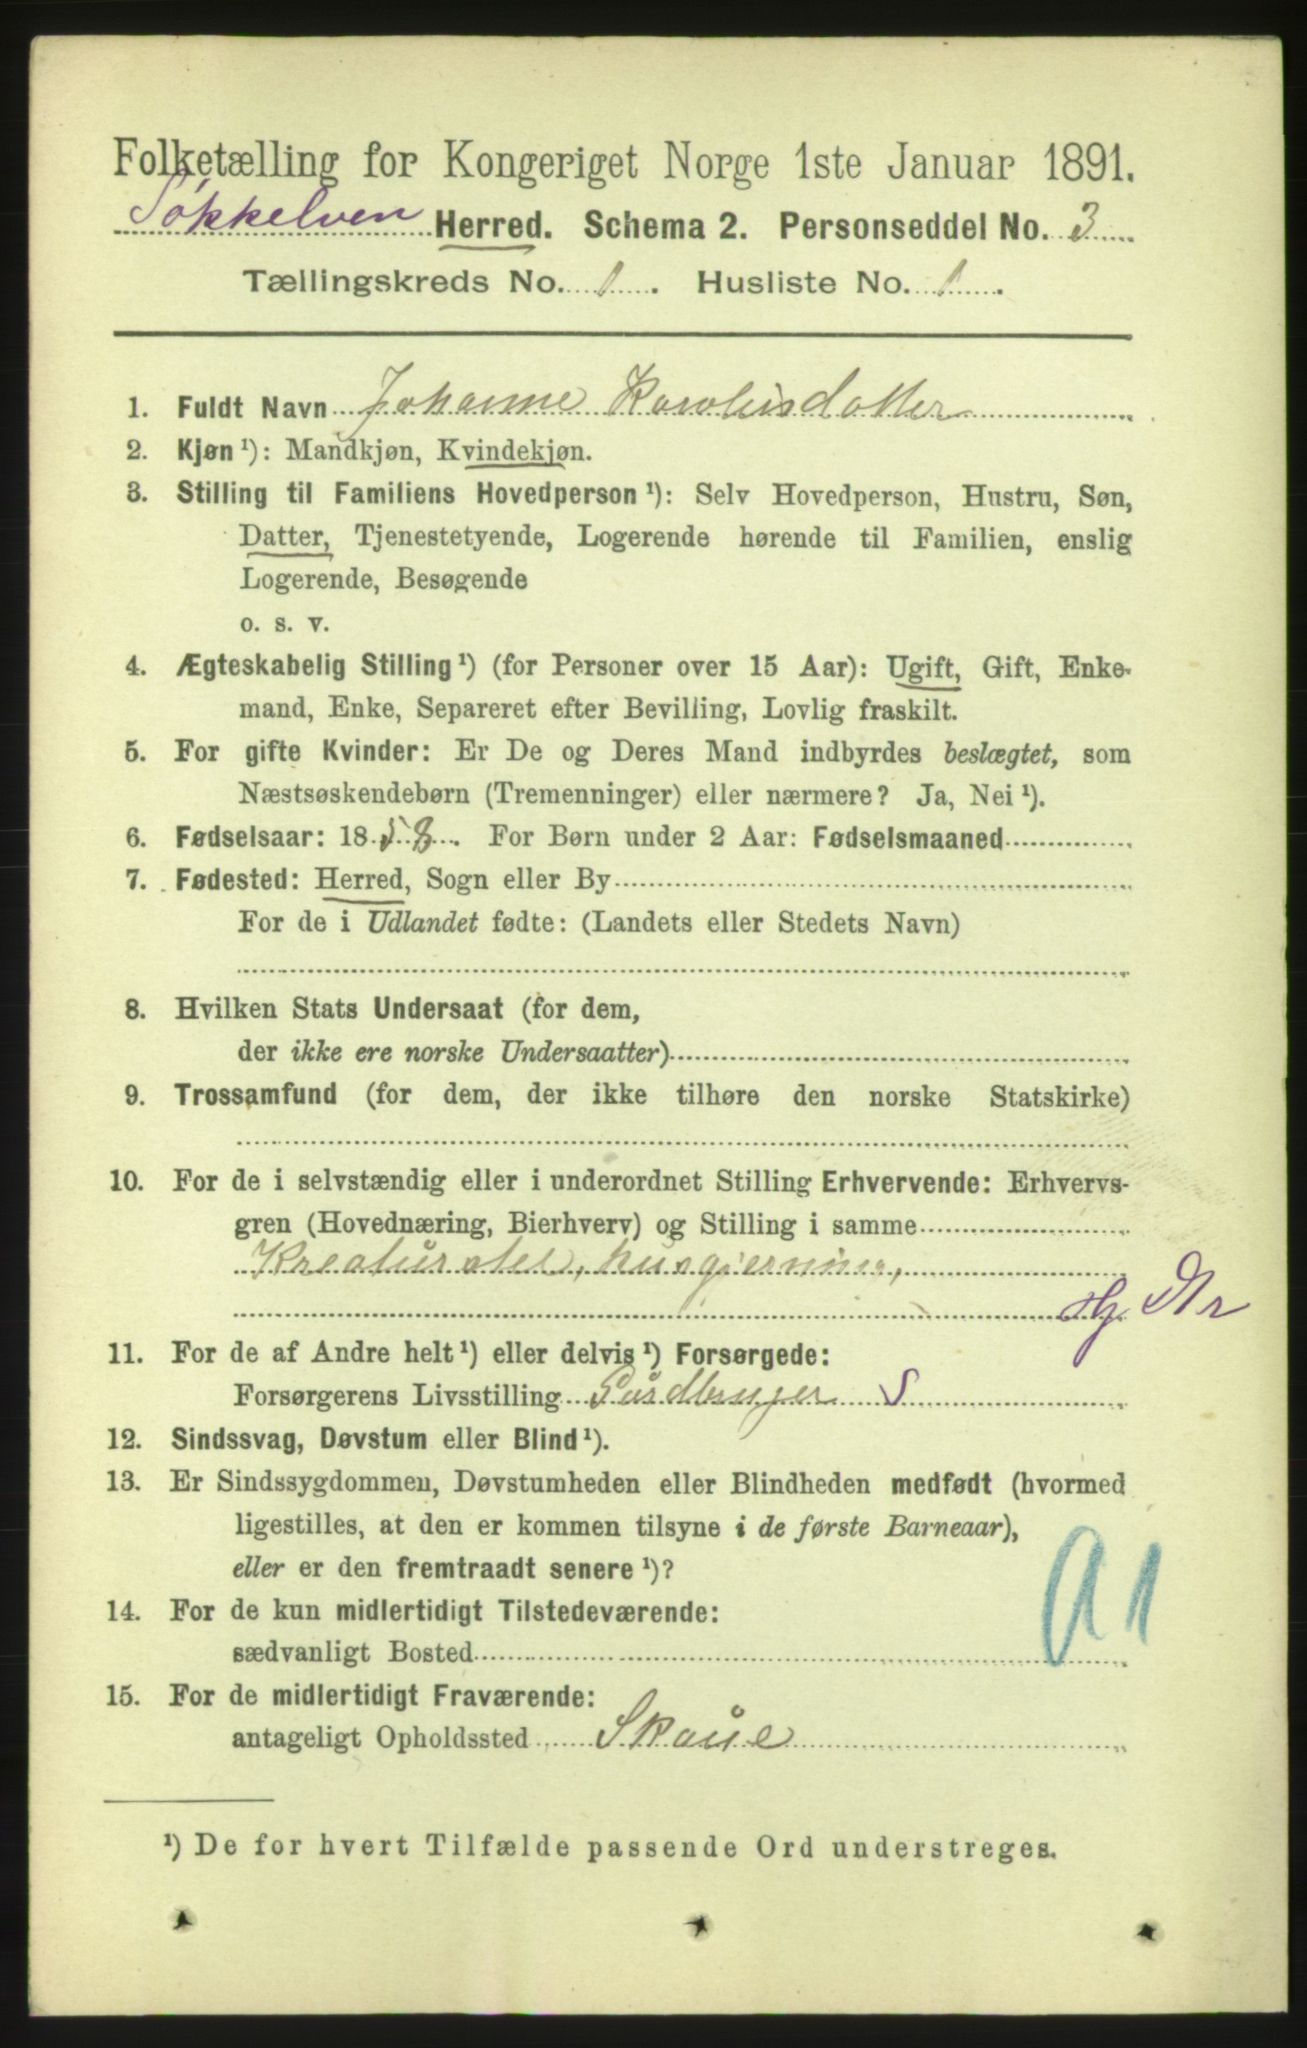 Folketælling for Kongeriget Norge 1ste Januar 1891.
Søkkelven Herred. Schema 2. Personseddel No. 3
Tællingskreds No. 1. Husliste No. 1.
1. Fuldt Navn Johanne Karolusdatter
2. Kjøn¹): Mandkjøn, Kvindekjøn.
3. Stilling til Familiens Hovedperson¹): Selv Hovedperson, Hustru, Søn,
Datter, Tjenestetyende, Logerende hørende til Familien, enslig
Logerende, Besøgende
o. s. v.
4. Ægteskabelig Stilling¹) (for Personer over 15 Aar): Ugift, Gift, Enke-
mand, Enke, Separeret efter Bevilling, Lovlig fraskilt.
5. For gifte Kvinder: Er De og Deres Mand indbyrdes beslægtet, som
Næstsøskendebørn (Tremenninger) eller nærmere? Ja, Nei¹).
6. Fødselsaar: 1858. For Børn under 2 Aar: Fødselsmaaned
7. Fødested: Herred, Sogn eller By
For de i Udlandet fødte: (Landets eller Stedets Navn)
8. Hvilken Stats Undersaat (for dem,
der ikke ere norske Undersaatter)
9. Trossamfund (for dem, der ikke tilhøre den norske Statskirke)
10. For de i selvstændig eller i underordnet Stilling Erhvervende: Erhvervs-
gren (Hovednæring, Bierhverv) og Stilling i samme
Kreaturstel, husgjerning,
11. For de af Andre helt¹) eller delvis¹) Forsørgede:
Forsørgerens Livsstilling Gårdbruger S
12. Sindssvag, Døvstum eller Blind¹).
13. Er Sindssygdommen, Døvstumheden eller Blindheden medfødt (hvormed
ligestilles, at den er kommen tilsyne i de første Barneaar),
eller er den fremtraadt senere¹)?
14. For de kun midlertidigt Tilstedeværende:
sædvanligt Bosted
15. For de midlertidigt Fraværende:
antageligt Opholdssted
¹) De for hvert Tilfælde passende Ord understreges.